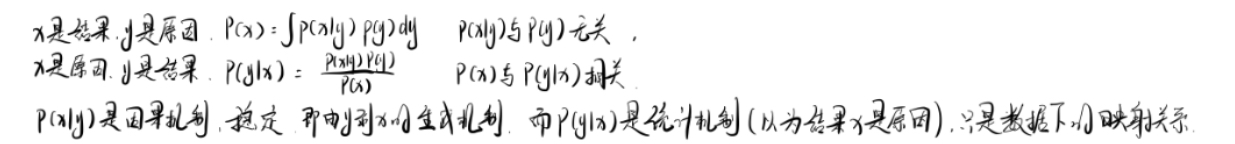 x是结果,y是原因. P(x)=∫P(x|y) P(y)dy P(x|y)与P(y)无关,
x是原因,y是结果. P(y|x) = P(x|y)P(y)/P(x) P(x)与P(y|x)相关.
P(x|y)是因果机制,稳定 即由y到x的生成机制. 而P(y|x)是统计机制(以为结果x是原因),只是数据下的映射关系.